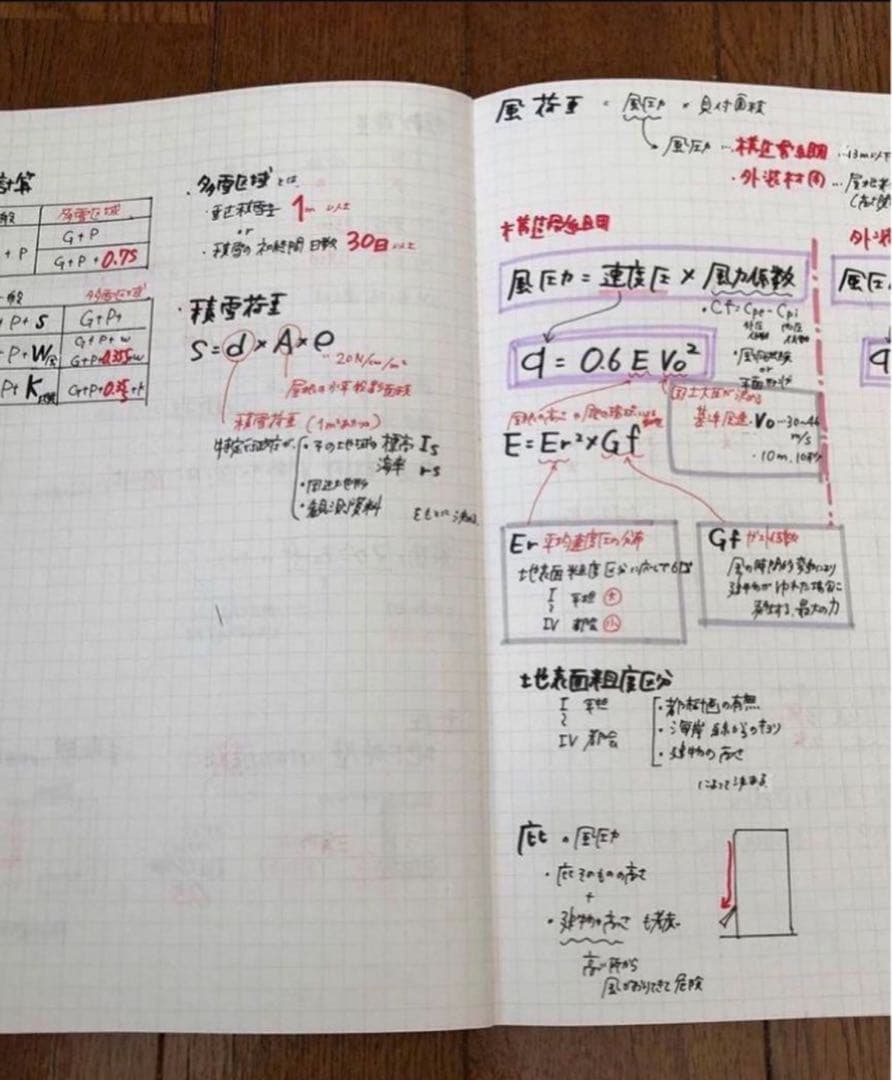 計算
般 多雪区域
+ P G+P
G+P+0.7S
般 多雪区域
+P+S G+P+
+P+W G+P+W
G+P+0.35S+W
P+K G+P+0.35S+K
・多雪区域とは
・垂直積雪量 1m以上
or
・積雪の初終間日数 30日以上
・積雪荷重
S=d×A×ρ
20N/cm/m²
屋根の水平投影面積
積雪荷重(1m²あたり)
特定行政庁が
・その地域の標高 ls
海率 rs
・周辺地形
・観測資料
をもとに決める
風荷重 = 風圧力 × 見付面積
風圧力 … 構造骨組用 …13m以下
・外装材用 …屋根
構造骨組用
外装
風圧力=速度圧×風力係数
風圧
・Cf=Cpe-Cpi
外圧 内圧
係数 係数
・風洞試験
or
平面形状
q=0.6EVo²
q
国土大臣が決める
基準風速・Vo…30~46
m/s
・10m,10分
屋根の高さの周辺環境による
E=Er²×Gf
Er 平均速度圧の分布
地表面粗度区分に応じて
I 平坦 大
〜
IV 都会 小
Gf ガスト係数
風の時間的変動により
建物がゆれた場合に
発生する、最大の力
地表面粗度区分
I 平坦
〜
IV 都会
・都市計画の有無
・海岸線からのキョリ
・建物の高さ
によって決まる
庇の風圧力
・庇そのものの高さ
+
・建物の高さも考慮
高い所から
風がおりてきて危険